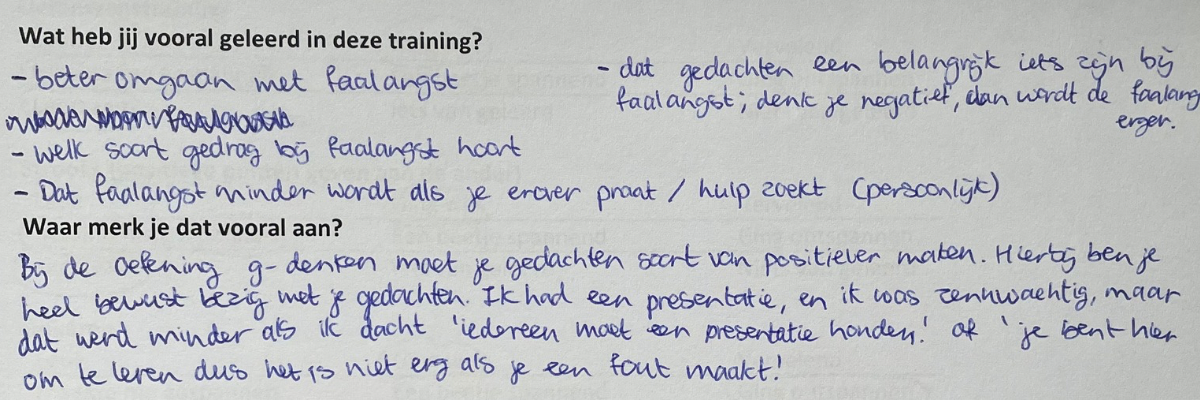 Wat heb jij vooral geleerd in deze training?
- beter omgaan met faalangst
- welk soort gedrag bij faalangst hoort
- Dat faalangst minder wordt als je erover praat / hulp zoekt (persoonlijk)
- dat gedachten een belangrijk iets zijn bij
faalangst; denk je negatief, dan wordt de faalang
erger.
Waar merk je dat vooral aan?
Bij de oefening g-denken moet je gedachten soort van positiever maken. Hierbij ben je
heel bewust bezig met je gedachten. Ik had een presentatie, en ik was zenuwachtig, maar
dat werd minder als ik dacht 'iedereen moet een presentatie houden!' of 'je bent hier
om te leren dus het is niet erg als je een fout maakt!'